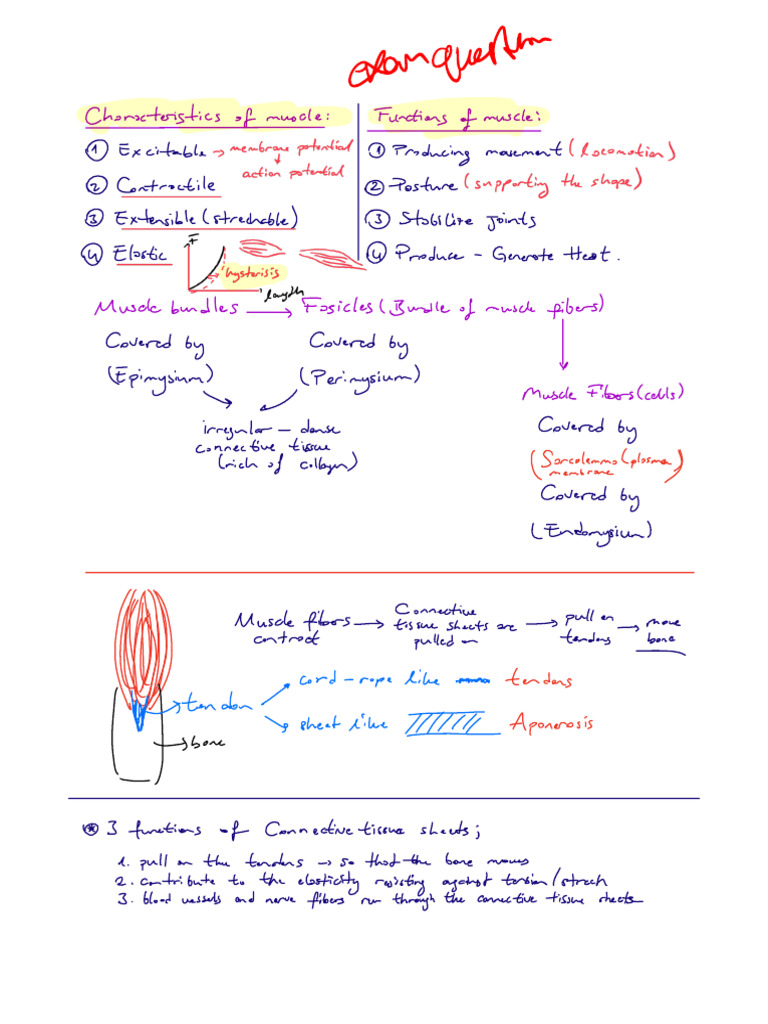 exam question
Characteristics of muscle:
① Excitable → membrane potential
↓
action potential
② Contractile
③ Extensible (strechable)
④ Elastic
F
hysterisis
length
Functions of muscle:
① Producing movement (locomotion)
② Posture (supporting the shape)
③ Stabilize joints
④ Produce - Generate Heat.
Muscle bundles → Fasicles (Bundle of muscle fibers)
Covered by
(Epimysium)
Covered by
(Perimysium)
irregular - dense
connective tissue
(rich of collagen)
Muscle Fibers (cells)
Covered by
(Sarcolemma (plasma
membrane)
Covered by
(Endomysium)
Muscle fibers
contract
→ Connective
tissue sheets are
pulled on
→ pull on
tendons
→ move
bone
→ tendon
→ bone
cord - rope like tendons
sheet like Aponerosis
* 3 functions of Connective tissue sheets;
1. pull on the tendens → so that the bone moves
2. contribute to the elasticity resisting against tension/strech
3. blood vessels and nerve fibers run through the connective tissue sheets